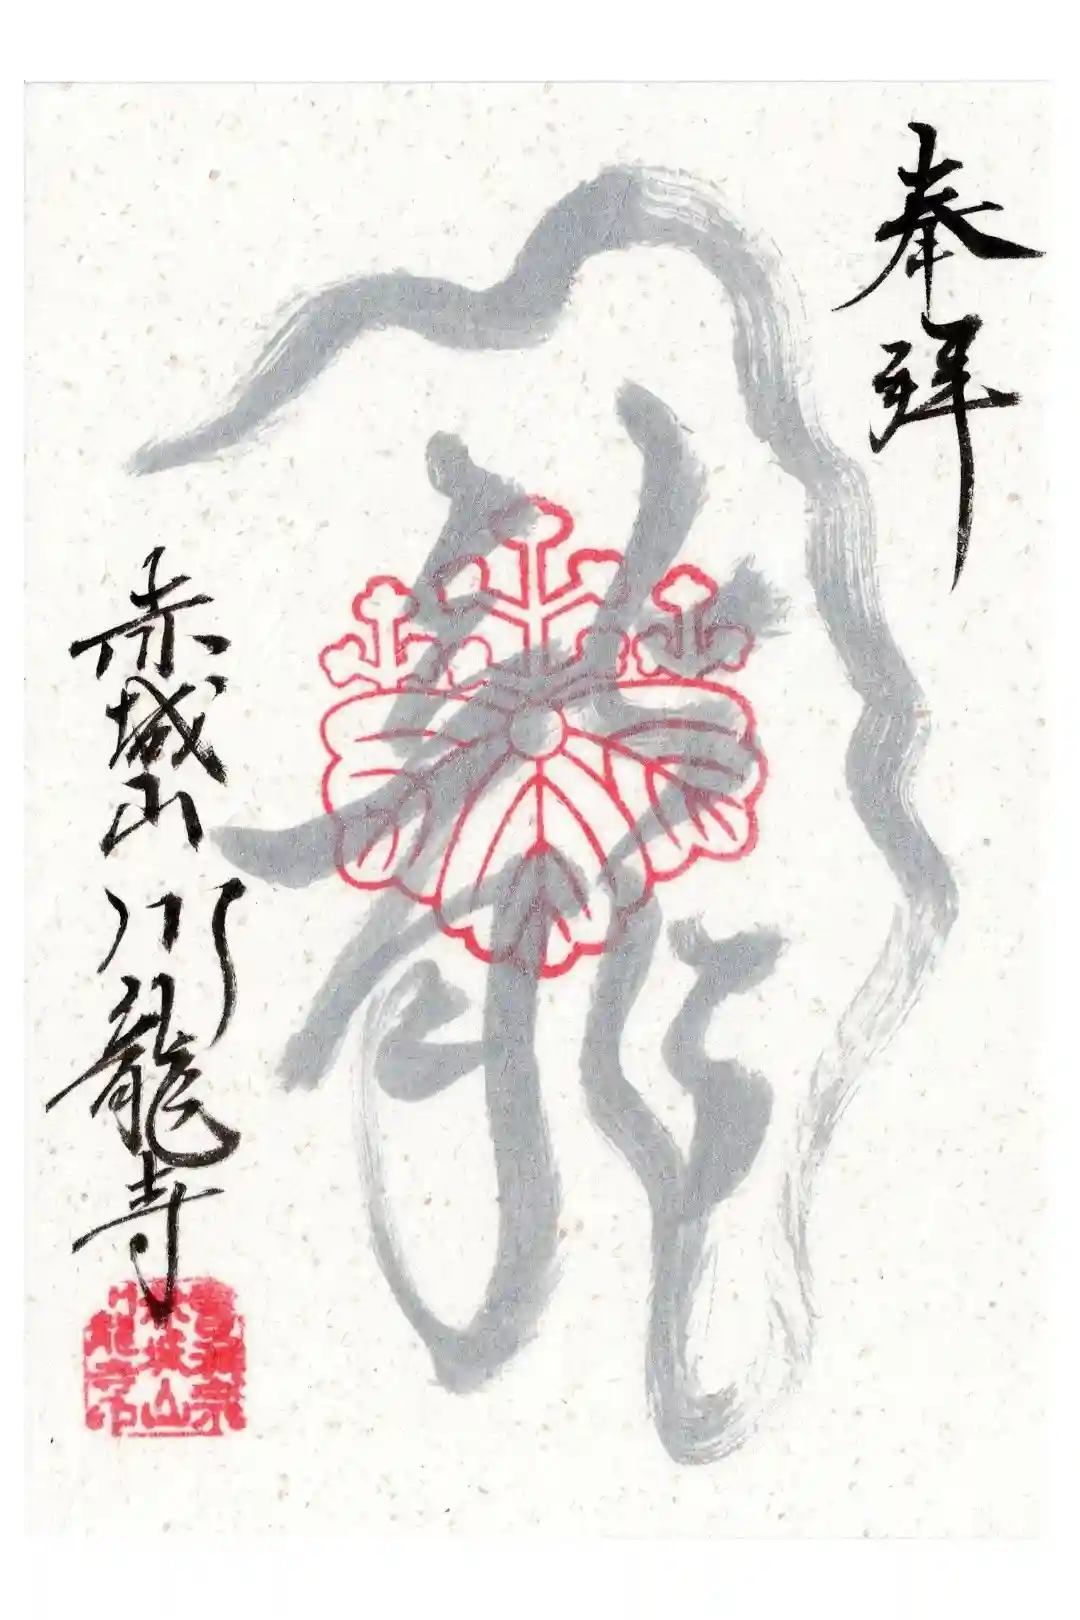 奉拝
赤城山 川龍寺
曹洞宗
赤城山
川龍寺